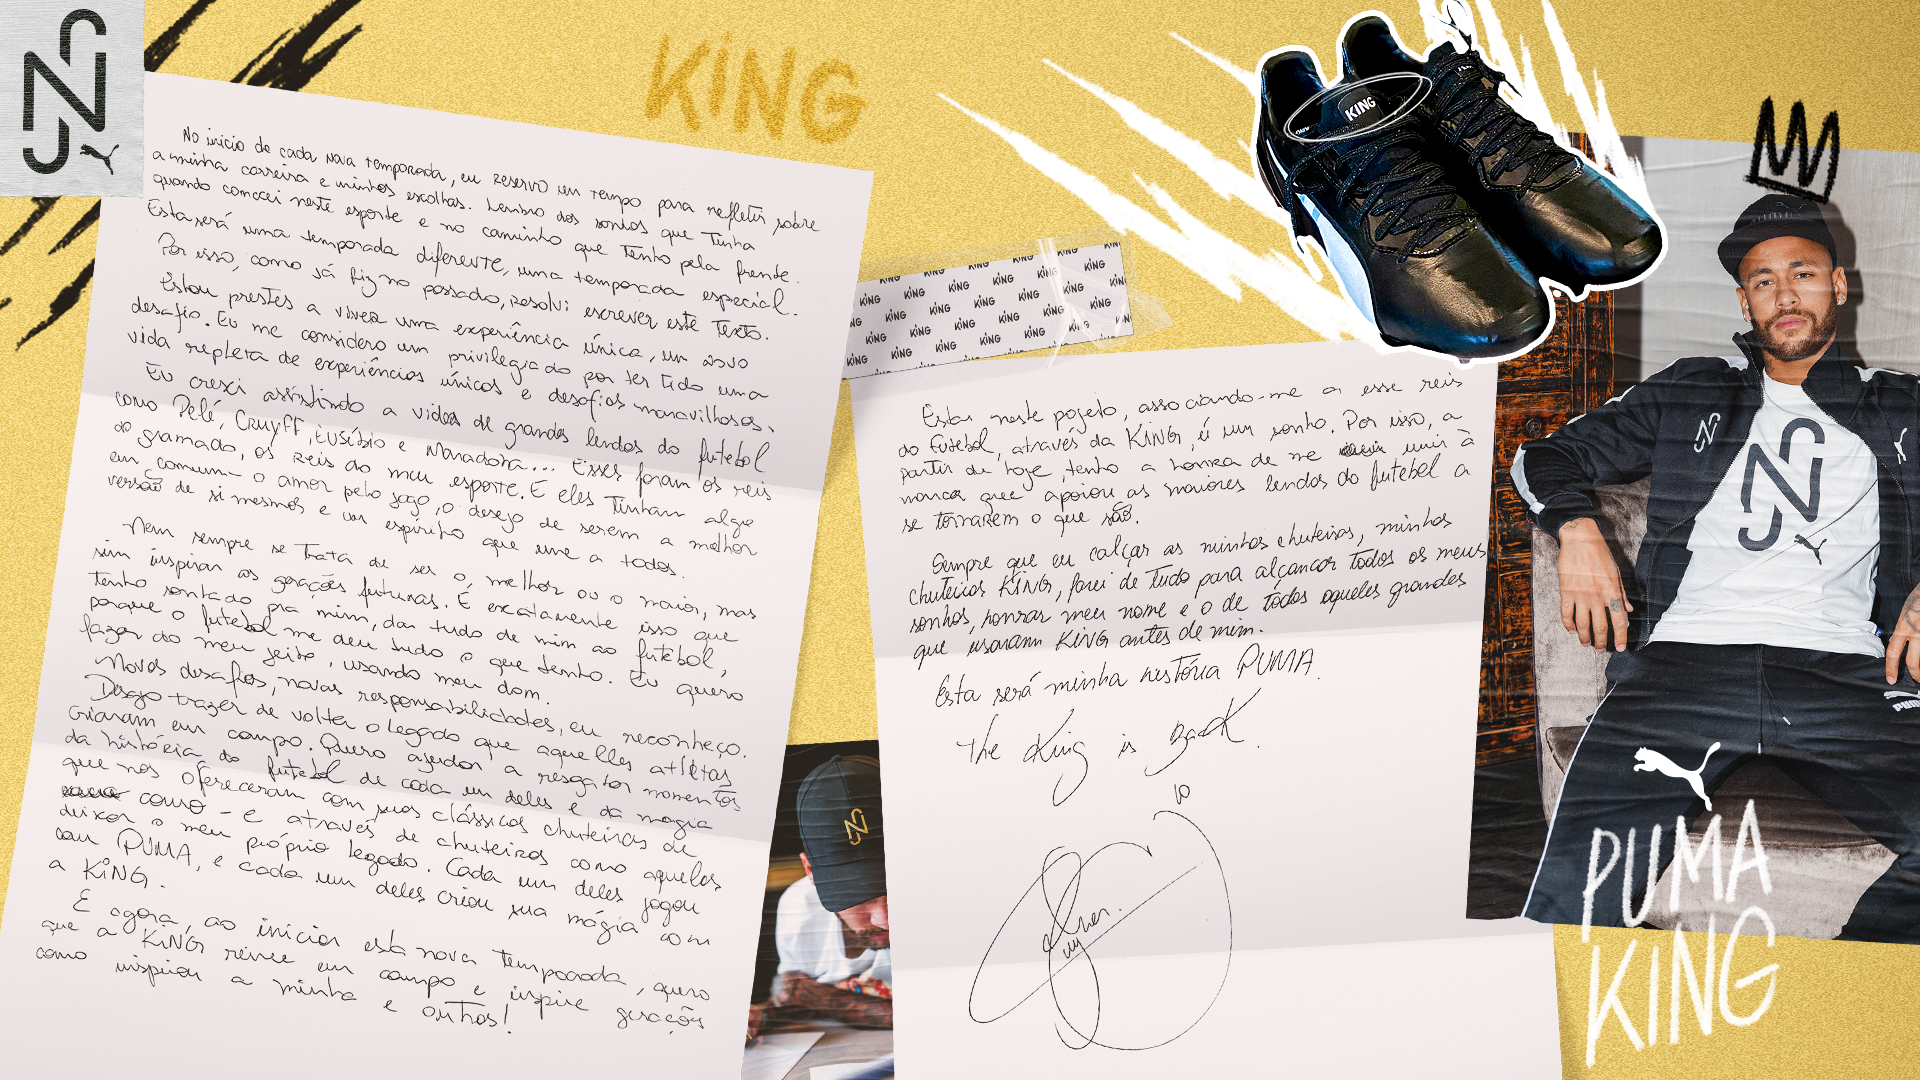 NJR
KING
No inicio de cada nova temporada, eu reservo um tempo para refletir sobre
a minha carreira e minhas escolhas. Lembro dos sonhos que tinha
quando comecei neste esporte e no caminho que tenho pela frente.
Esta será uma temporada diferente, uma temporada especial.
Por isso, como já fiz no passado, resolvi escrever este texto.
Estou prestes a viver uma experiência única, um novo
desafio. Eu me considero um privilegiado por ter tido uma
vida repleta de experiências únicas e desafios maravilhosos.
Eu cresci assistindo a vídeos de grandes lendas do futebol
como Pelé, Cruyff, Eusébio e Maradona... Esses foram os reis
do gramado, os reis do meu esporte. E eles tinham algo
em comum - o amor pelo jogo, o desejo de serem a melhor
versão de si mesmos e um espírito que une a todos.
Nem sempre se trata de ser o melhor ou o maior, mas
sim inspirar as gerações futuras. É exatamente isso que
tenho sonhado pra mim, dar tudo de mim ao futebol,
porque o futebol me deu tudo o que tenho. Eu quero
fazer do meu jeito, usando meu dom.
Novos desafios, novas responsabilidades, eu reconheço.
Desejo trazer de volta o legado que aquelles atletas
criaram em campo. Quero ajudar a resgatar momentos
da história do futebol de cada um deles e da magia
que nos ofereceram com suas clássicas chuteiras de
como - e através de chuteiras como aquelas
deixar o meu próprio legado. Cada um deles jogou
com PUMA, e cada um deles criou sua mágia com
a KING.
E agora, ao iniciar esta nova temporada, quero
que a KING reine em campo e inspire gerações
como inspirou a minha e outras!
KING
KING KING KING KING KING KING
Estar neste pojeto, associando-me a esse reis
do futebol, através da KING, é um sonho. Por isso, a
partir de hoje, tenho a honra de me unir à
marca que apoiou as maiores lendas do futebol a
se tornarem o que são.
Sempre que eu calçar as minhas chuteiras, minhas
chuteiras KING, farei de tudo para alcançar todos os meus
sonhos, honrar meu nome e o de todos aqueles grandes
que usaram KING antes de mim.
Esta será minha história PUMA.
The King is Back.
10
PUMA
KING